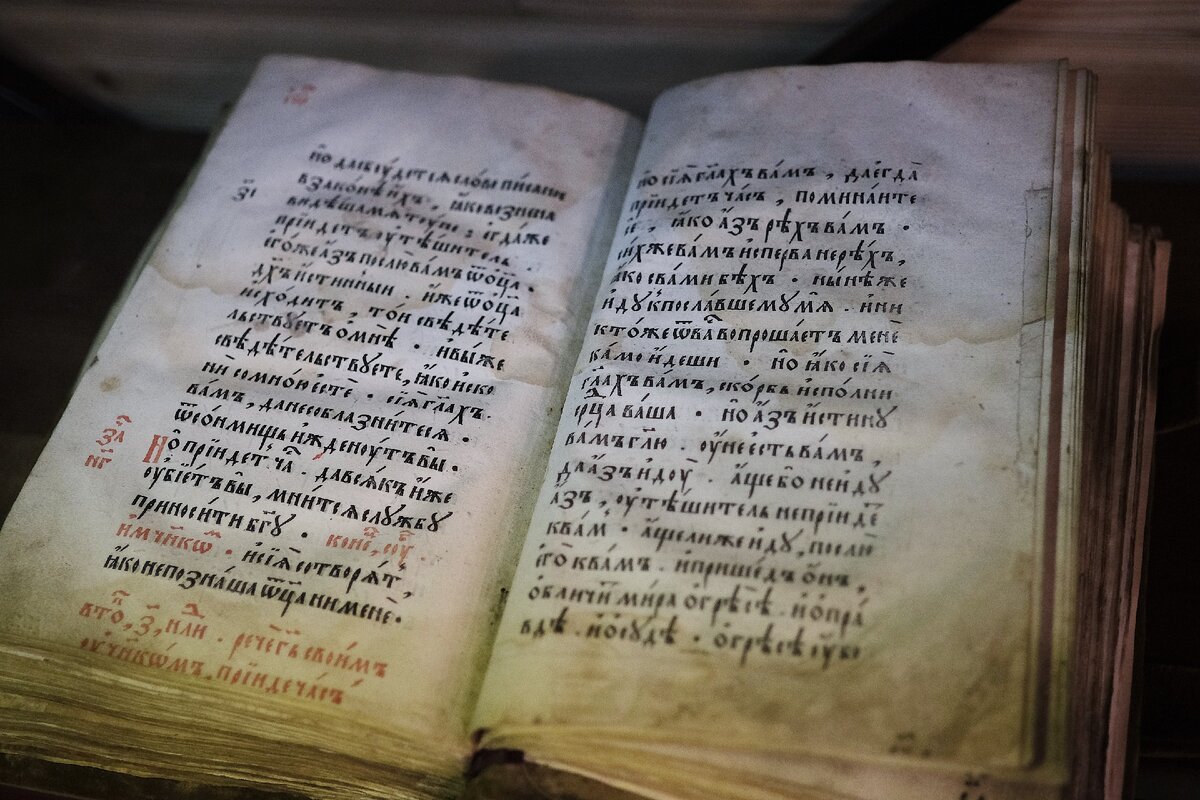 но да сбꙋ́детсѧ сло́во пи́санное
в зако́нѣ и҆́хъ , ꙗ҆́ко возненави
дѣша мѧ тꙋ́не ⁘ є҆гда́ же
прїи́детъ ᲂу҆тѣ́шитель .
є҆го́же а҆́зъ послю̀ ва́мъ ѿ ѻ҆ц҃а̀ .
дх҃ъ и҆́стинныи . и҆́же ѿ ѻ҆ц҃а̀
и҆схо́дитъ , то́и свѣдѣ́те
льствꙋетъ о мнѣ̀ . и҆ вы́ же
свѣдѣ́тельствꙋете , ꙗ҆́ко и҆ско
ни со мно́ю є҆стѐ . сїѧ̀ гл҃ахъ
ва́мъ , да не соблазни́тесѧ .
ѿ со́нмищь и҆жденꙋ́тъ вы̀ .
Но̀ прїи́детъ ча́съ . да всѧ́къ и҆́же
ᲂу҆бїе́тъ вы̀ , мни́тсѧ слꙋ́жбꙋ
приноси́ти бг҃ꙋ .
и҆ сїѧ̀ сотворѧ́тъ ,
ꙗ҆́ко не позна́ша ѿц҃а ни менѐ .
речѐ гь҃ свои́мъ
ᲂу҆ч҃нкѡ́мъ . прїи́де ча́съ
но сїѧ̀ гл҃ахъ ва́мъ , да є҆гда̀
прїи́детъ ча́съ , помина́ите
сїѐ , ꙗ҆́ко а҆́зъ рѣ́хъ ва́мъ .
си́хже ва́мъ и҆сперва не рѣ́хъ ,
ꙗ҆́ко с ва́ми бѣ́хъ . ны́нѣ же
и҆дꙋ̀ к посла́вшемꙋ мѧ̀ . и҆ ни
кто́же ѿ ва́съ вопроша́етъ менѐ
ка́мо и҆́деши . но̀ ꙗ҆́ко сїѧ̀
гл҃ахъ ва́мъ , ско́рбь и҆спо́лни
срⷣца ва́ша . но̀ а҆́зъ и҆́стинꙋ
ва́мъ гл҃ю . ᲂу҆́не є҆сть ва́мъ ,
да а҆́зъ и҆дꙋ̀ . а҆́ще бо не и҆дꙋ̀
а҆́зъ , ᲂу҆тѣ́шитель не прїи́детъ
к ва́мъ . а҆́ще ли же и҆дꙋ̀ , послю̀
є҆го̀ к ва́мъ . и҆ прише́дъ ѻ҆́нъ ,
ѻ҆бличи́тъ ми́ра о грѣсѣ̀ . и҆ о пра́
вдѣ . и҆ о сꙋдѣ̀ . о грѣсѣ̀ ᲂу҆́бо